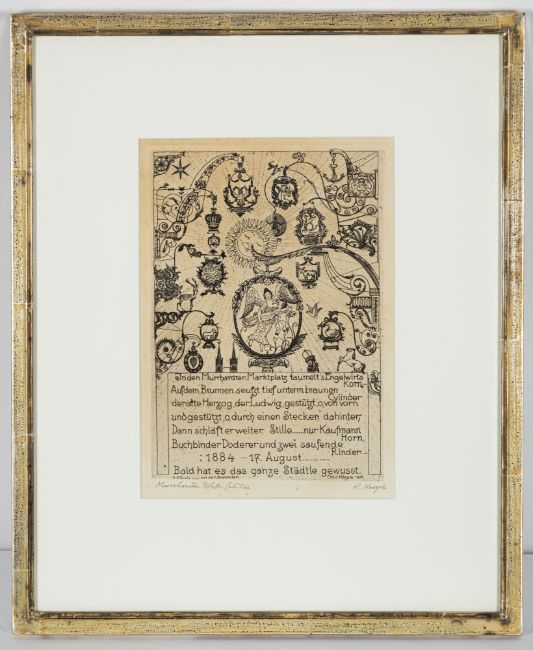 In den Murrharster Marktplatz taumelt's Engelwirts
Korn.
Auf dem Brunnen seufzt tief unterm braunen
Cylinder
der alte Herzog, der Ludwig, gestützt, o, von vorn
und gestützt, o, durch einen Stecken dahinter,
Dann schläft er weiter. Stille.....nur Kaufmann
Horn,
Buchbinder Doderer und zwei saufende
Rinder—
: 1884 – 17. August..........
Bald hat es das ganze Städtle gewusst.
Otto Nägele
Murrhardter Wirts
R. Naegele